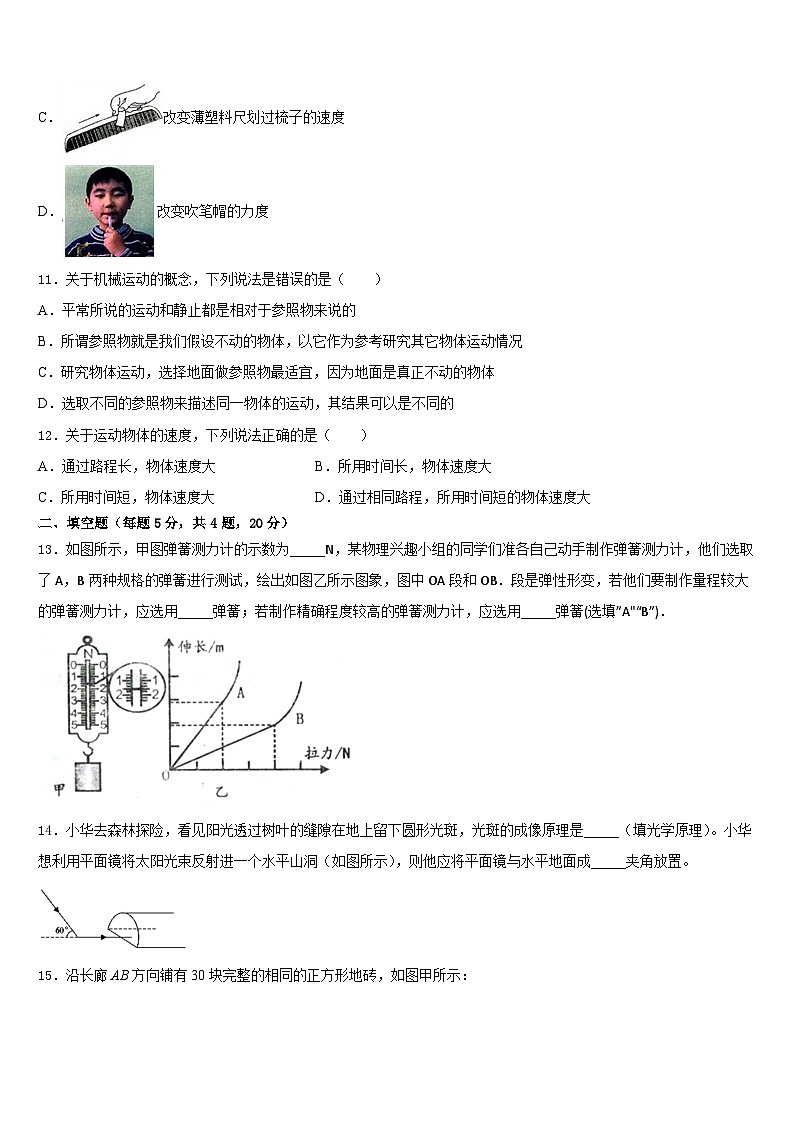 C．改变薄塑料尺划过梳子的速度
D．改变吹笔帽的力度
11．关于机械运动的概念，下列说法是错误的是（　　）
A．平常所说的运动和静止都是相对于参照物来说的
B．所谓参照物就是我们假设不动的物体，以它作为参考研究其它物体运动情况
C．研究物体运动，选择地面做参照物最适宜，因为地面是真正不动的物体
D．选取不同的参照物来描述同一物体的运动，其结果可以是不同的
12．关于运动物体的速度，下列说法正确的是（　　）
A．通过路程长，物体速度大　　B．所用时间长，物体速度大
C．所用时间短，物体速度大　　D．通过相同路程，所用时间短的物体速度大
二、填空题（每题 5 分，共 4 题，20 分）
13．如图所示，甲图弹簧测力计的示数为_____N，某物理兴趣小组的同学们准各自己动手制作弹簧测力计，他们选取
了 A，B 两种规格的弹簧进行测试，绘出如图乙所示图象，图中 OA 段和 OB．段是弹性形变，若他们要制作量程较大
的弹簧测力计，应选用_____弹簧；若制作精确程度较高的弹簧测力计，应选用_____弹簧(选填”A"“B”)．
N
0 0
1 1
2 2
3 3
4 4
5 5
1 1
2 2
甲
伸长/m
A
B
拉力/N
O
乙
14．小华去森林探险，看见阳光透过树叶的缝隙在地上留下圆形光斑，光斑的成像原理是_____（填光学原理）。小华
想利用平面镜将太阳光束反射进一个水平山洞（如图所示），则他应将平面镜与水平地面成_____夹角放置。
60°
15．沿长廊 AB 方向铺有 30 块完整的相同的正方形地砖，如图甲所示：